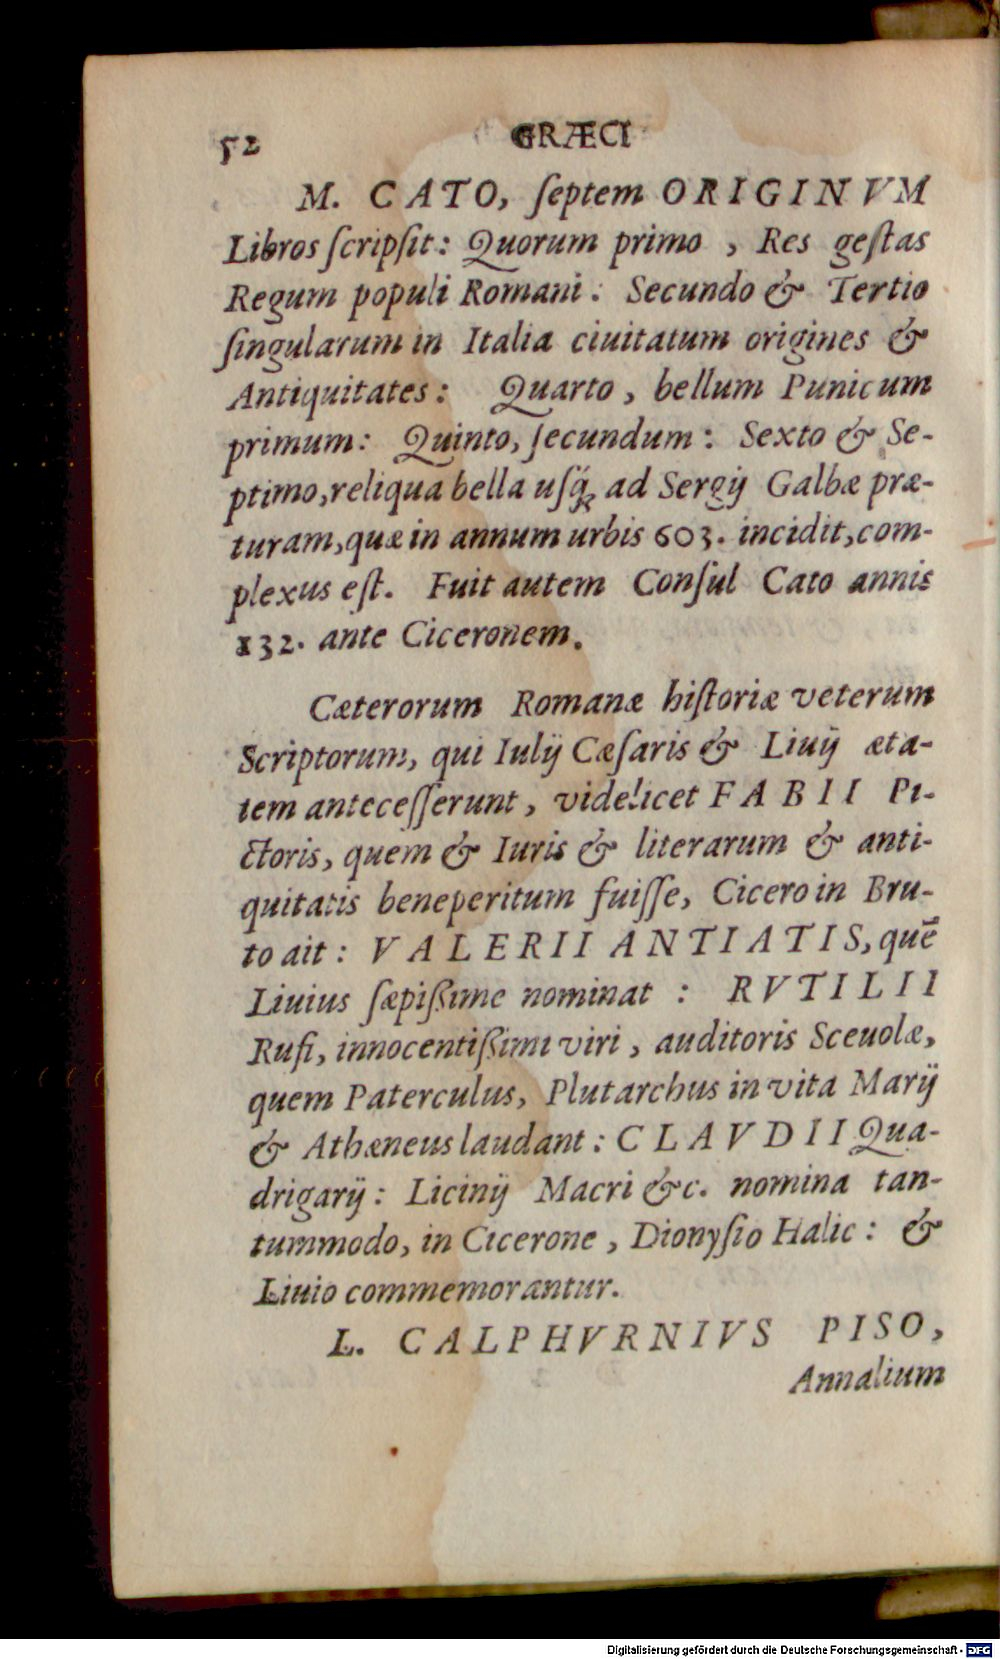 52 GRÆCI
M. CATO, ſeptem ORIGINVM
Libros ſcripſit: Quorum primo , Res geſtas
Regum populi Romani: Secundo & Tertio
ſingularum in Italia ciuitatum origines &
Antiquitates: Quarto, bellum Punicum
primum: Quinto, ſecundum: Sexto & Se-
ptimo, reliqua bella uſq́ꝫ ad Sergij Galbæ præ-
turam, quæ in annum urbis 603. incidit, com-
plexus eſt. Fuit autem Conſul Cato annis
132. ante Ciceronem.
Cæterorum Romanæ hiſtoriæ veterum
Scriptorum, qui Iulij Cæſaris & Liuij æta-
tem anteceſſerunt, videlicet FABII Pi-
ctoris, quem & Iuris & literarum & anti-
quitatis beneperitum fuiſſe, Cicero in Bru-
to ait: VALERII ANTIATIS, quē
Liuius ſæpißime nominat : RVTILII
Rufi, innocentißimi viri, auditoris Sceuolæ,
quem Paterculus, Plutarchus in vita Marij
& Athæneus laudant: CLAVDII Qua-
drigarij: Licinij Macri &c. nomina tan-
tummodo, in Cicerone, Dionyſio Halic: &
Liuio commemorantur.
L. CALPHVRNIVS PISO,
Annalium
Digitalisierung gefördert durch die Deutsche Forschungsgemeinschaft - DFG